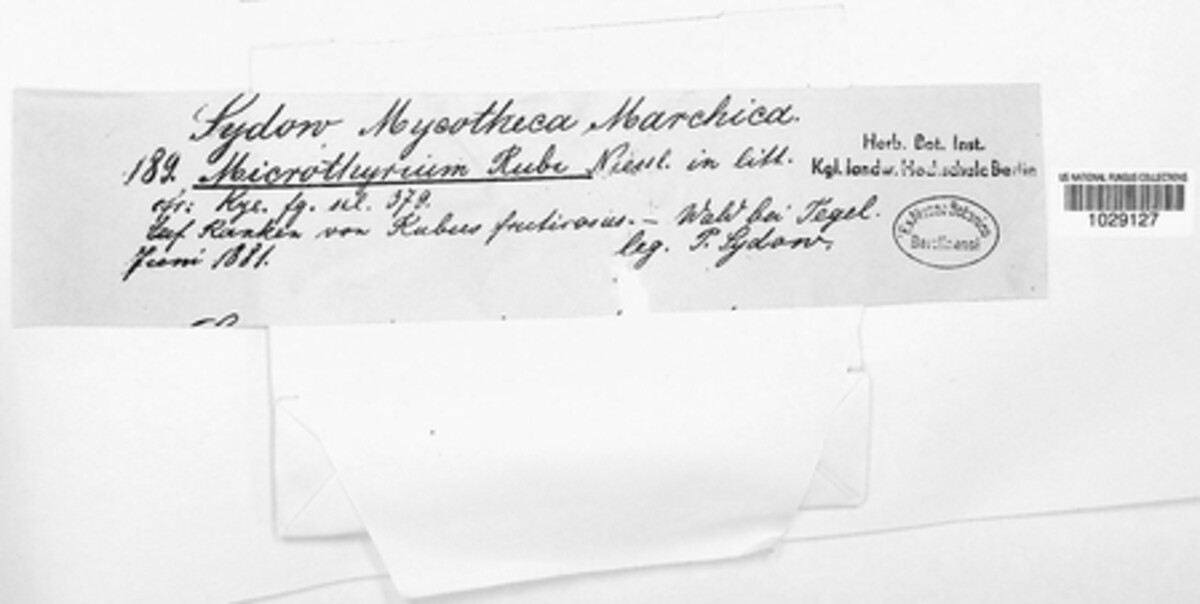 Sydow Mycotheca Marchica.
189. Microthyrium Rubi Niessl. in litt.
cfr: Kze. fg. sel. 379.
Auf Ranken von Rubus fruticosus. – Wald bei Tegel.
Juni 1881. leg. P. Sydow.
Herb. Bot. Inst.
Kgl. landw. Hochschule Berlin
Ex Museo Botanico
Berolinensi
US NATIONAL FUNGUS COLLECTIONS
1029127